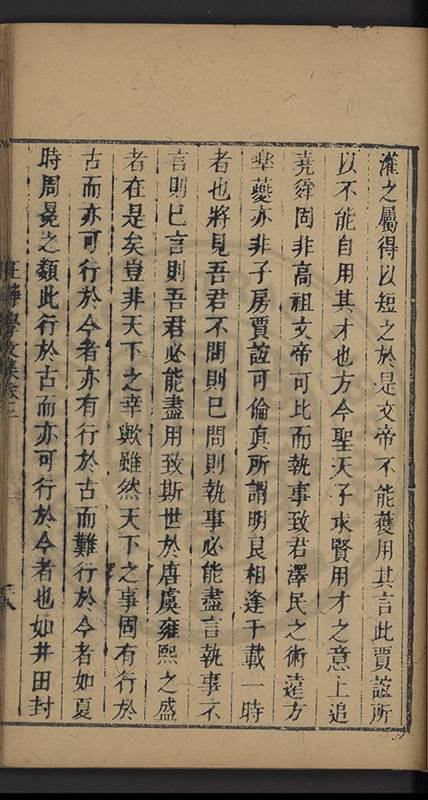 灌之屬得以短之於是文帝不能獲用其言此賈誼所
以不能自用其才也方今聖天子求賢用才之意上追
堯舜固非高祖文帝可比而執事致君澤民之術遠方
臯夔亦非子房賈誼可倫真所謂明良相逢千載一時
者也將見吾君不問則已問則執事必能盡言執事不
言則已言則吾君必能盡用致斯世於唐虞雍熙之盛
者在是矣豈非天下之幸歟雖然天下之事固有行於
古而亦可行於今者亦有行於古而難行於今者如夏
時周冕之類此行於古而亦可行於今者也如井田封